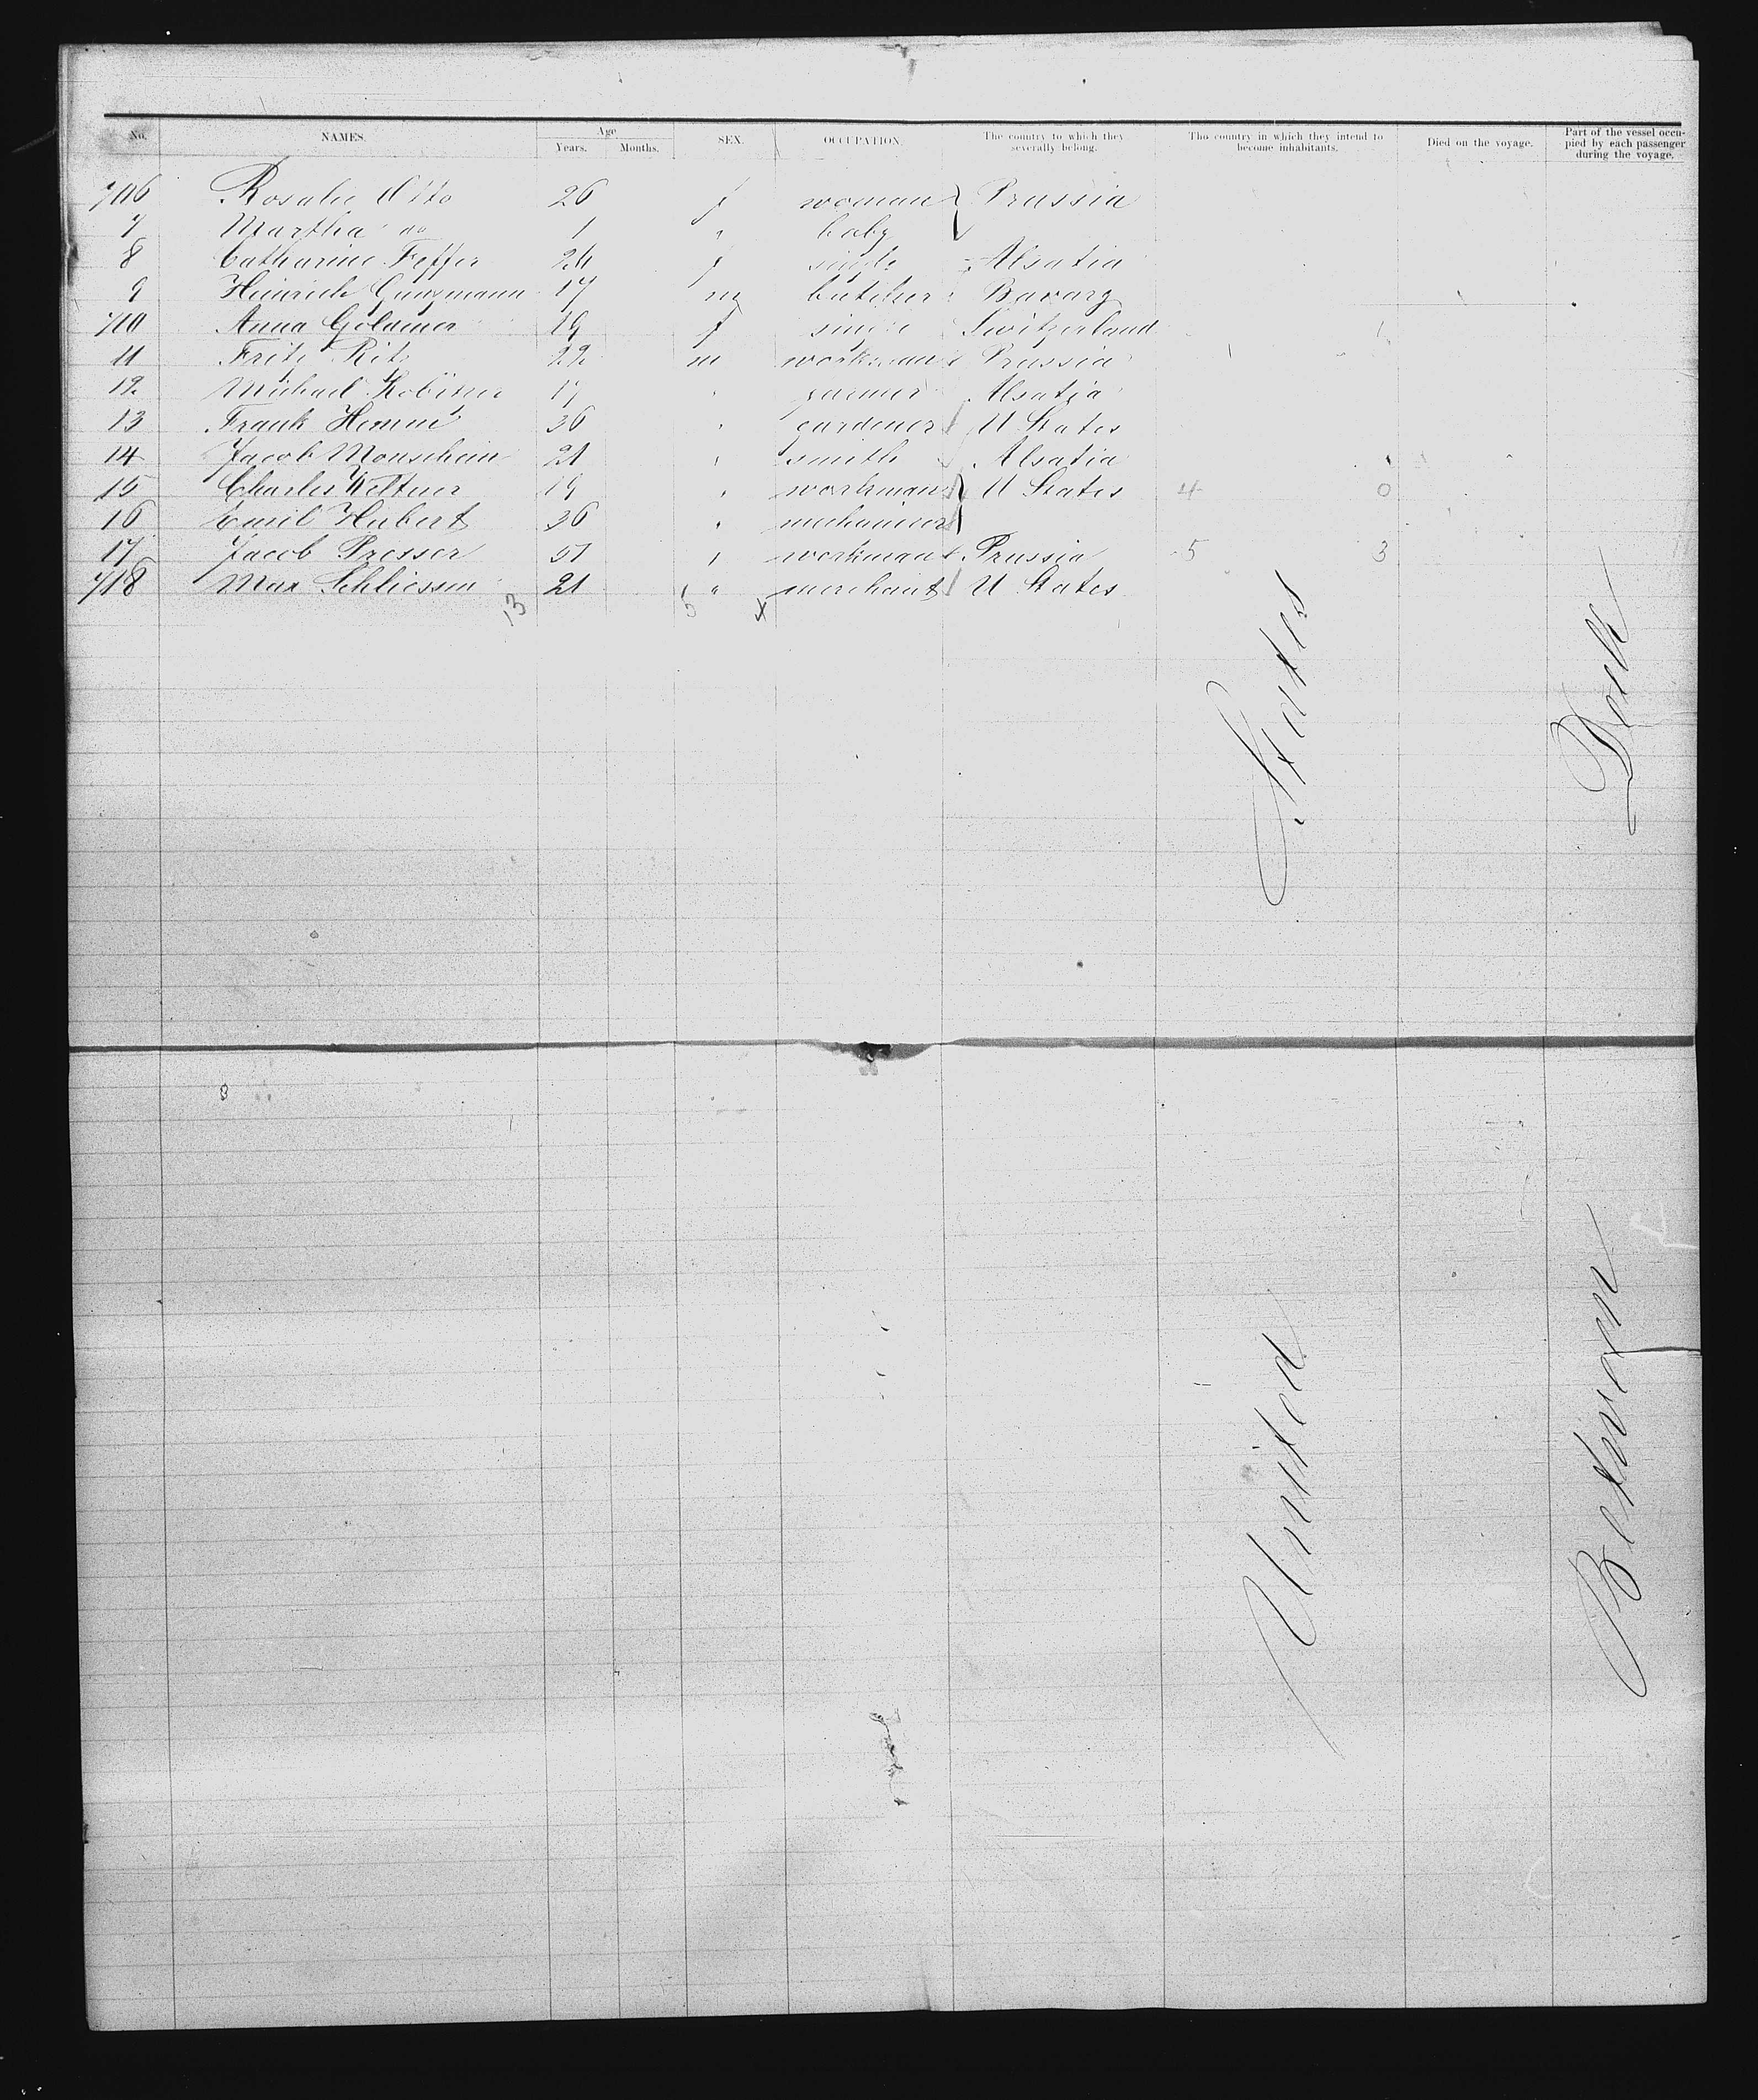 No. NAMES. Age Years. Months. SEX. OCCUPATION. The country to which they severally belong. The country in which they intend to become inhabitants. Died on the voyage. Part of the vessel occupied by each passenger during the voyage.
706 Rosalie Otto 26 f woman } Prussia
7 Martha do 1 " baby
8 Catharine Feffer 24 f single Alsatia
9 Heinrich Gunzmann 17 m butcher Bavary
710 Anna Goldiner 19 f single Switzerland
11 Fritz Ritz 22 m workman Prussia
12 Michael 19 " farmer Alsatia
13 Frank Hemm 36 " gardener U States
14 Jacob Monschein 21 " smith Alsatia
15 Charles Keltner 19 " workman } U States 4 0
16 Emil Hubert 36 " mechanicer
17 Jacob Presser 51 " workman Prussia 5 3
718 Max Schliessm 21 " merchant U States
13 5 x
United States
Between Deck